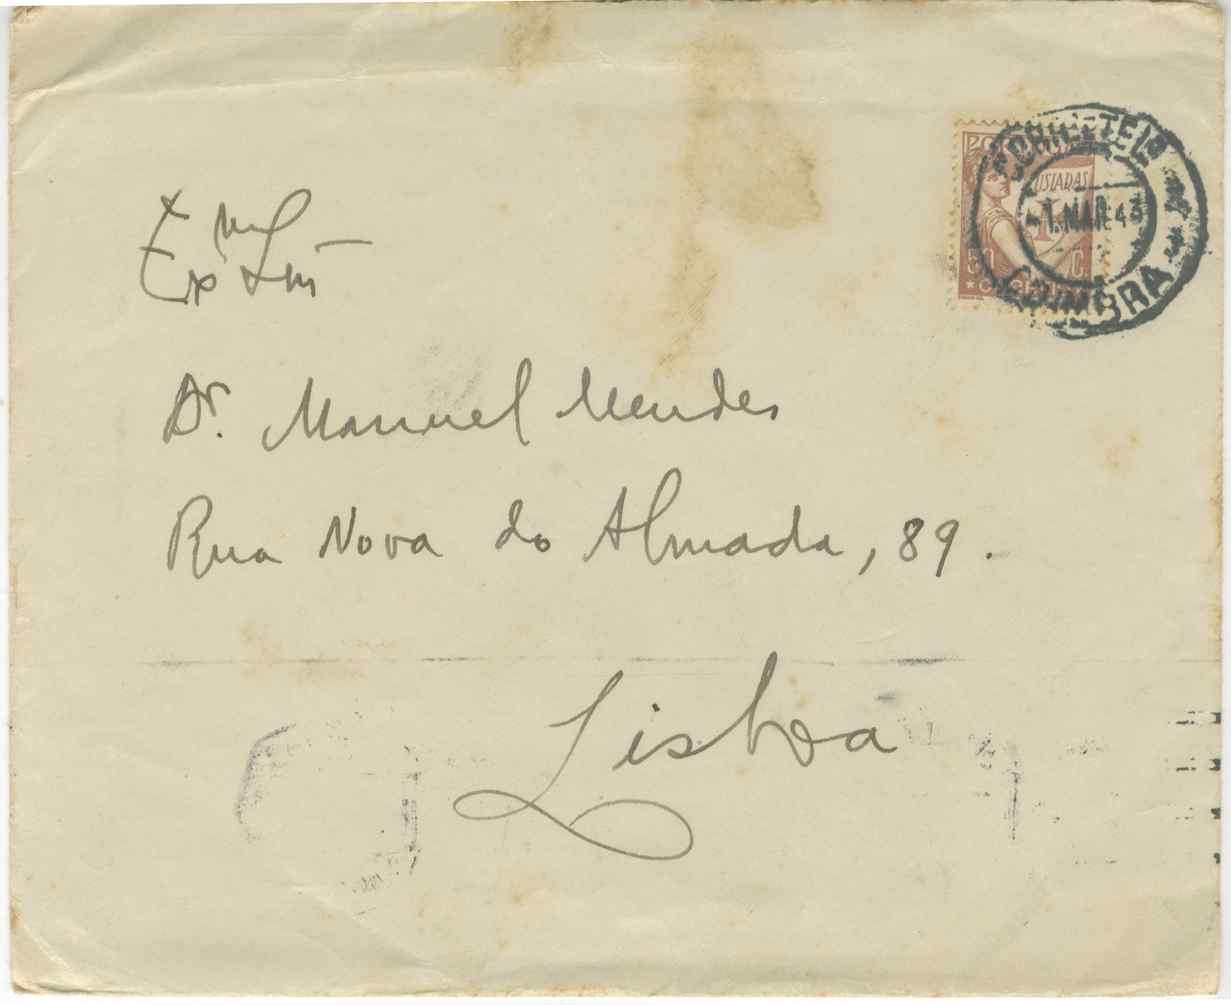 Exmo Snr
Dr. Manuel Mendes
Rua Nova do Almada, 89.
Lisboa
LUSIADAS
50 C.
CORREIO
CORR. E TELº
1.MAR.43
COIMBRA